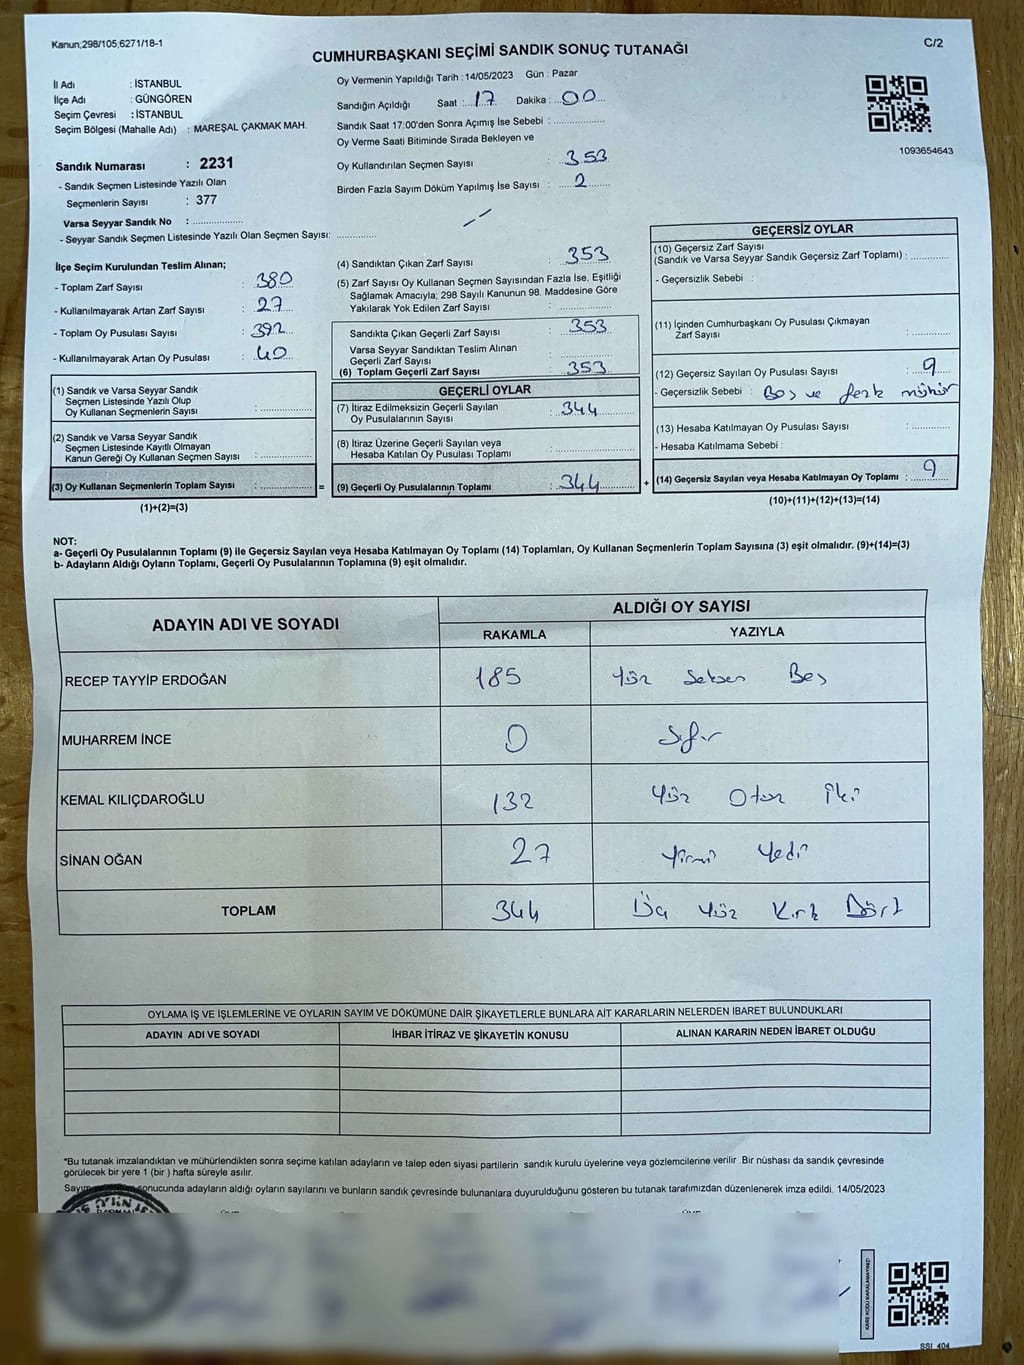 Kanun;298/105;6271/18-1
C/2
CUMHURBAŞKANI SEÇİMİ SANDIK SONUÇ TUTANAĞI
İl Adı : İSTANBUL
İlçe Adı : GÜNGÖREN
Seçim Çevresi : İSTANBUL
Seçim Bölgesi (Mahalle Adı) : MAREŞAL ÇAKMAK MAH.
Sandık Numarası : 2231
- Sandık Seçmen Listesinde Yazılı Olan
Seçmenlerin Sayısı : 377
Varsa Seyyar Sandık No :
- Seyyar Sandık Seçmen Listesinde Yazılı Olan Seçmen Sayısı:
Oy Vermenin Yapıldığı Tarih : 14/05/2023 Gün : Pazar
Sandığın Açıldığı Saat : 17 Dakika : 00
Sandık Saat 17:00'den Sonra Açımış İse Sebebi :
Oy Verme Saati Bitiminde Sırada Bekleyen ve
Oy Kullandırılan Seçmen Sayısı : 353
Birden Fazla Sayım Döküm Yapılmış İse Sayısı : 2
1093654643
İlçe Seçim Kurulundan Teslim Alınan;
- Toplam Zarf Sayısı : 380
- Kullanılmayarak Artan Zarf Sayısı : 27
- Toplam Oy Pusulası Sayısı : 392
- Kullanılmayarak Artan Oy Pusulası : 40
(1) Sandık ve Varsa Seyyar Sandık
Seçmen Listesinde Yazılı Olup
Oy Kullanan Seçmenlerin Sayısı :
(2) Sandık ve Varsa Seyyar Sandık
Seçmen Listesinde Kayıtlı Olmayan
Kanun Gereği Oy Kullanan Seçmen Sayısı :
(3) Oy Kullanan Seçmenlerin Toplam Sayısı : =
(1)+(2)=(3)
(4) Sandıktan Çıkan Zarf Sayısı : 353
(5) Zarf Sayısı Oy Kullanan Seçmen Sayısından Fazla İse, Eşitliği
Sağlamak Amacıyla; 298 Sayılı Kanunun 98. Maddesine Göre
Yakılarak Yok Edilen Zarf Sayısı :
Sandıkta Çıkan Geçerli Zarf Sayısı : 353
Varsa Seyyar Sandıktan Teslim Alınan
Geçerli Zarf Sayısı :
(6) Toplam Geçerli Zarf Sayısı : 353
GEÇERLİ OYLAR
(7) İtiraz Edilmeksizin Geçerli Sayılan
Oy Pusulalarının Sayısı : 344
(8) İtiraz Üzerine Geçerli Sayılan veya
Hesaba Katılan Oy Pusulası Toplamı :
(9) Geçerli Oy Pusulalarının Toplamı : 344 +
GEÇERSİZ OYLAR
(10) Geçersiz Zarf Sayısı
(Sandık ve Varsa Seyyar Sandık Geçersiz Zarf Toplamı) :
- Geçersizlik Sebebi :
(11) İçinden Cumhurbaşkanı Oy Pusulası Çıkmayan
Zarf Sayısı :
(12) Geçersiz Sayılan Oy Pusulası Sayısı : 9
- Geçersizlik Sebebi : Boş ve fazla mühür
(13) Hesaba Katılmayan Oy Pusulası Sayısı :
- Hesaba Katılmama Sebebi :
(14) Geçersiz Sayılan veya Hesaba Katılmayan Oy Toplamı : 9
(10)+(11)+(12)+(13)=(14)
NOT:
a- Geçerli Oy Pusulalarının Toplamı (9) ile Geçersiz Sayılan veya Hesaba Katılmayan Oy Toplamı (14) Toplamları, Oy Kullanan Seçmenlerin Toplam Sayısına (3) eşit olmalıdır. (9)+(14)=(3)
b- Adayların Aldığı Oyların Toplamı, Geçerli Oy Pusulalarının Toplamına (9) eşit olmalıdır.
ADAYIN ADI VE SOYADI
ALDIĞI OY SAYISI
RAKAMLA YAZIYLA
RECEP TAYYİP ERDOĞAN 185 Yüz Seksen Beş
MUHARREM İNCE 0 Sıfır
KEMAL KILIÇDAROĞLU 132 Yüz Otuz İki
SİNAN OĞAN 27 Yirmi Yedi
TOPLAM 344 Üç Yüz Kırk Dört
OYLAMA İŞ VE İŞLEMLERİNE VE OYLARIN SAYIM VE DÖKÜMÜNE DAİR ŞİKAYETLERLE BUNLARA AİT KARARLARIN NELERDEN İBARET BULUNDUKLARI
ADAYIN ADI VE SOYADI İHBAR İTİRAZ VE ŞİKAYETİN KONUSU ALINAN KARARIN NEDEN İBARET OLDUĞU
*Bu tutanak imzalandıktan ve mühürlendikten sonra seçime katılan adayların ve talep eden siyasi partilerin sandık kurulu üyelerine veya gözlemcilerine verilir .Bir nüshası da sandık çevresinde
görülecek bir yere 1 (bir ) hafta süreyle asılır.
Sayım sonucunda adayların aldığı oyların sayılarını ve bunların sandık çevresinde bulunanlara duyurulduğunu gösteren bu tutanak tarafımızdan düzenlenerek imza edildi. 14/05/2023
SSI_404